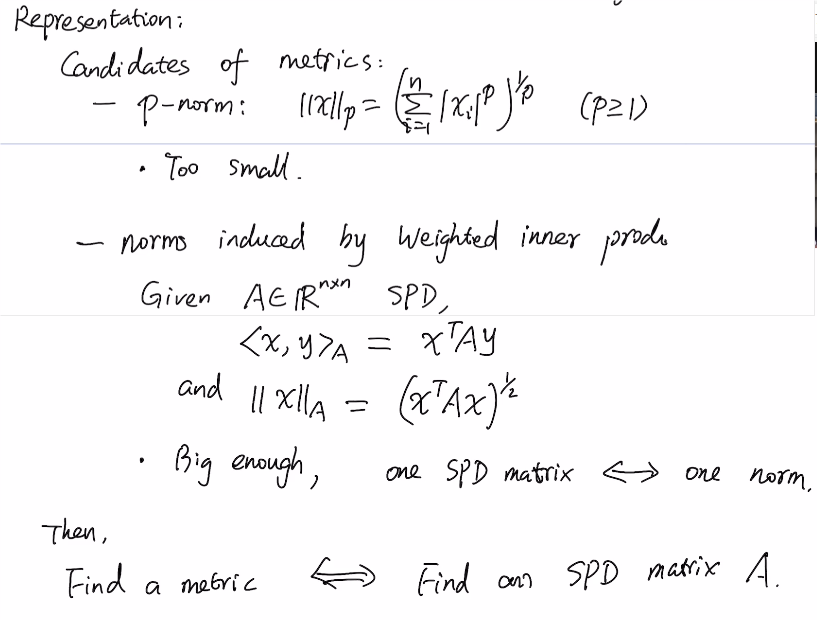 Representation:
Candidates of metrics:
— p-norm: ||x||_p = (∑_{i=1}^{n} |x_i|^p)^{1/p} (p≥1)
• Too small.
— norms induced by weighted inner produ
Given A∈ℝ^{n×n} SPD,
<x, y>_A = x^T A y
and ||x||_A = (x^T A x)^{1/2}
• Big enough, one SPD matrix ⟺ one norm.
Then,
Find a metric ⟺ Find an SPD matrix A.